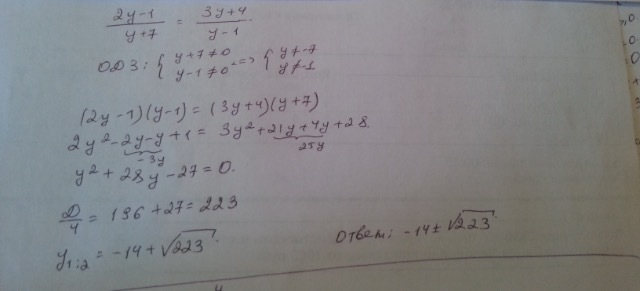 (2y-1)/(y+7) = (3y+4)/(y-1)
ОДЗ: { y+7≠0 => { y≠-7
y-1≠0 y≠-1
(2y-1)(y-1) = (3y+4)(y+7)
2y²-2y-y+1 = 3y²+21y+4y+28.
-3y 25y
y²+28y-27=0.
D/4 = 196+27=223
y1;2 = -14±√223. Ответ: -14±√223.